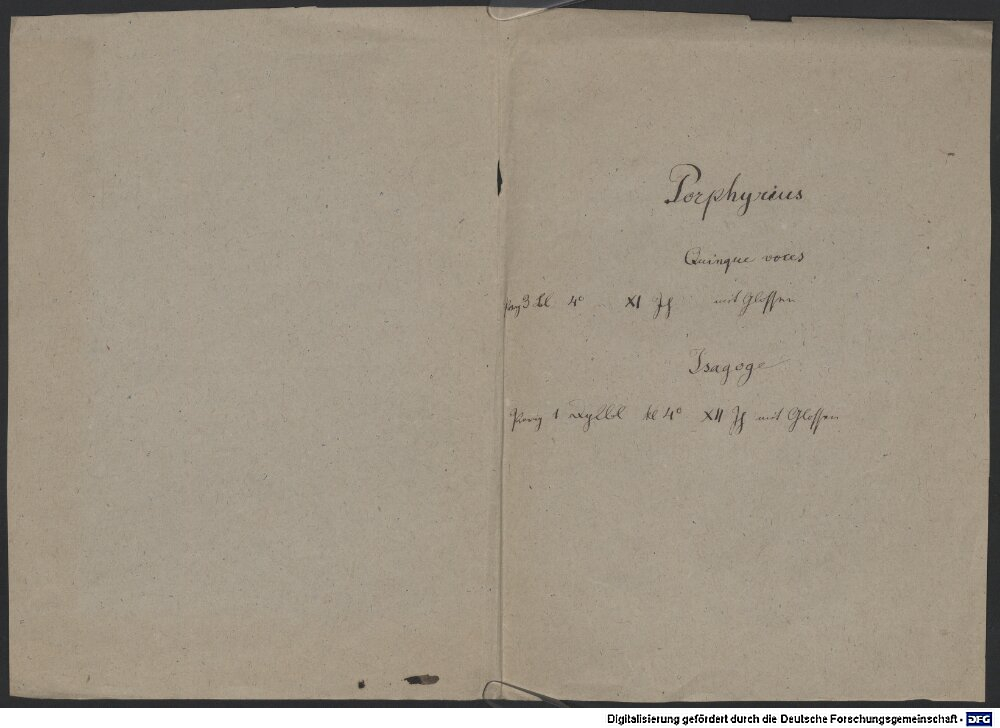 Porphyrius
Quinque voces
3 bl 4° XI Jh mit Glossen
Isagoge
1 kl 4° XII Jh mit Glossen
Digitalisierung gefördert durch die Deutsche Forschungsgemeinschaft - DFG